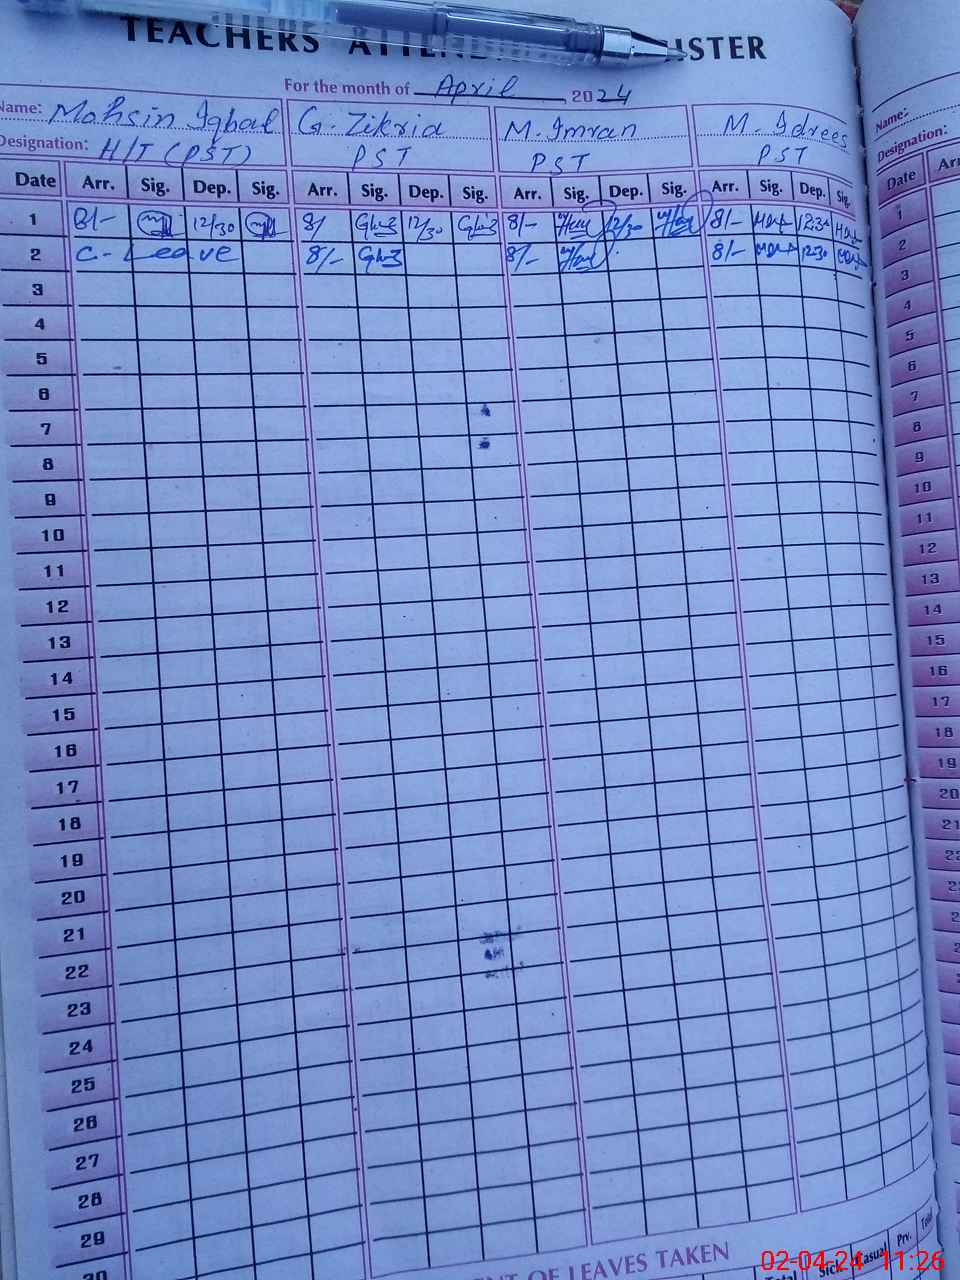 TEACHERS ATTEND ISTER
For the month of April 2024
Name: Mohsin Iqbal G. Zikria M. Imran M. Idrees
Designation: H/T (PST) PST PST PST
Date Arr. Sig. Dep. Sig. Arr. Sig. Dep. Sig. Arr. Sig. Dep. Sig. Arr. Sig. Dep. Sig.
1 8/- 12/30 8/ 12/30 8/- 12/30 8/- 12:30
2 C-Leave 8/- 8/- 8/- 12:30
3
4
5
6
7
8
9
10
11
12
13
14
15
16
17
18
19
20
21
22
23
24
25
26
27
28
29
30
NT OF LEAVES TAKEN
Sick Casual Prv. Total
02-04-24 11:26
Name:
Designation:
Date Arr
1
2
3
4
5
6
7
8
9
10
11
12
13
14
15
16
17
18
19
20
21